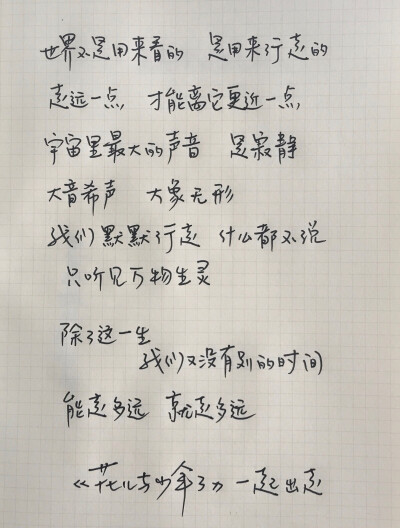 世界不是用来看的 是用来行走的
走远一点 才能离它更近一点
宇宙里最大的声音 是寂静
大音希声 大象无形
我们默默行走 什么都不说
只听见万物生灵
除了这一生
我们又没有别的时间
能走多远 就走多远
《花儿与少年了》一起出走